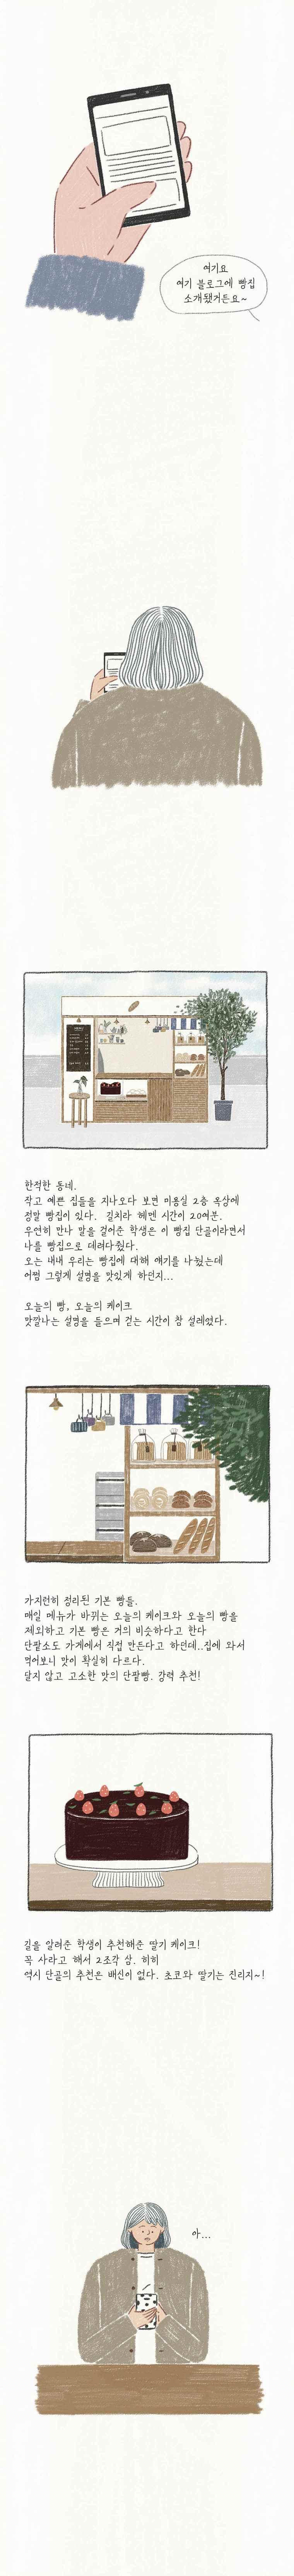 여기요
여기 블로그에 빵집
소개됐거든요~
한적한 동네.
작고 예쁜 집들을 지나오다 보면 미용실 2층 옥상에
정말 빵집이 있다. 길치라 헤멘 시간이 20여분.
우연히 만나 말을 걸어준 학생은 이 빵집 단골이라면서
나를 빵집으로 데려다줬다.
오는 내내 우리는 빵집에 대해 얘기를 나눴는데
어쩜 그렇게 설명을 맛있게 하던지...
오늘의 빵, 오늘의 케이크
맛깔나는 설명을 들으며 걷는 시간이 참 설레였다.
가지런히 정리된 기본 빵들.
매일 메뉴가 바뀌는 오늘의 케이크와 오늘의 빵을
제외하고 기본 빵은 거의 비슷하다고 한다
단팥소도 가게에서 직접 만든다고 하던데..집에 와서
먹어보니 맛이 확실히 다르다.
달지 않고 고소한 맛의 단팥빵. 강력 추천!
길을 알려준 학생이 추천해준 딸기 케이크!
꼭 사라고 해서 2조각 삼. 히히
역시 단골의 추천은 배신이 없다. 초코와 딸기는 진리지~!
아...